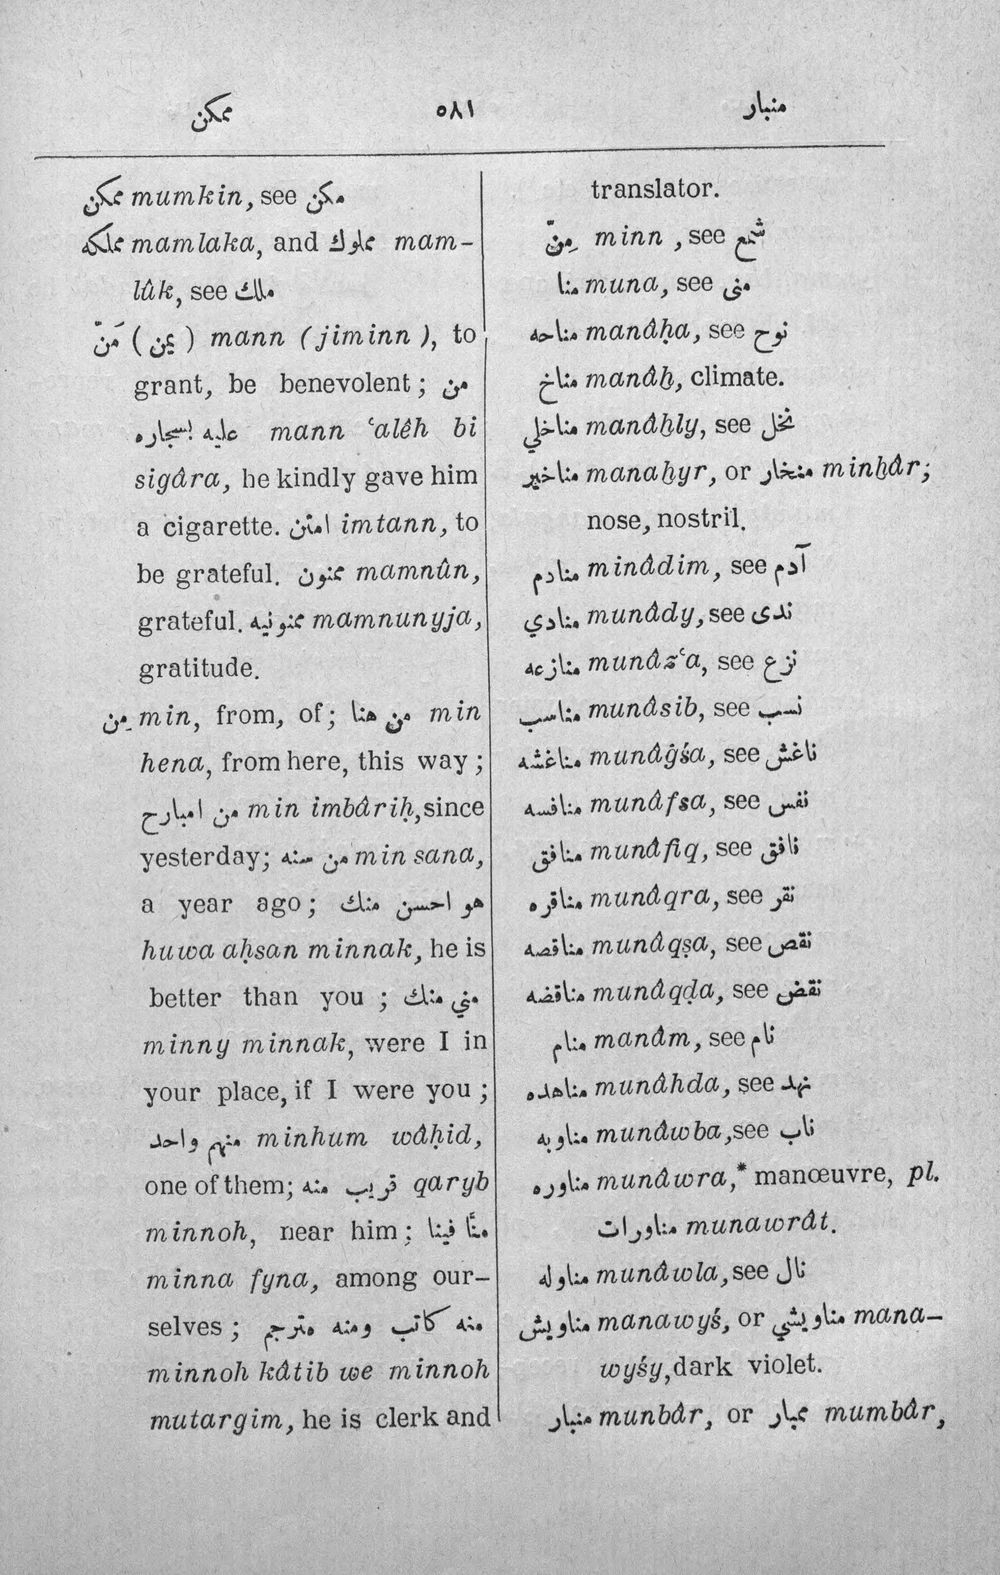 ممكن ٥٨١ منبار
ممكن mumkin, see مكن
مملكه mamlaka, and مملوك mam-
lûk, see ملك
مَنّ (يمن) mann (jiminn), to
grant, be benevolent; من
عليه بسجاره mann ʿalêh bi
sigâra, he kindly gave him
a cigarette. امتن imtann, to
be grateful. ممنون mamnûn,
grateful. ممنونيه mamnunyja,
gratitude.
مِن min, from, of; من هنا min
hena, from here, this way;
من امبارح min imbâriḥ, since
yesterday; من سنه min sana,
a year ago; هو احسن منك
huwa aḥsan minnak, he is
better than you; مني منك
minny minnak, were I in
your place, if I were you;
منهم واحد minhum wâḥid,
one of them; قريب منه qaryb
minnoh, near him; منّا فينا
minna fyna, among our-
selves; منه كاتب ومنه مترجم
minnoh kâtib we minnoh
mutargim, he is clerk and
translator.
مِنّ minn, see شمع
منا muna, see منى
مناحه manâḥa, see نوح
مناخ manâḫ, climate.
مناخلي manâḫly, see نخل
مناخير manaḫyr, or منخار minḫâr;
nose, nostril.
منادم minâdim, see آدم
منادي munâdy, see ندى
منازعه munâzʿa, see نزع
مناسب munâsib, see نسب
مناغشه munâĝśa, see ناغش
منافسه munâfsa, see نفس
منافق munâfiq, see نافق
مناقره munâqra, see نقر
مناقصه munâqṣa, see نقص
مناقضه munâqḍa, see نقض
منام manâm, see نام
مناهده munâhda, see نهد
مناوبه munâwba, see ناب
مناوره munâwra,* manœuvre, pl.
مناورات munawrât.
مناوله munâwla, see نال
مناويش manawyś, or مناويشي mana-
wyśy, dark violet.
منبار munbâr, or ممبار mumbâr,